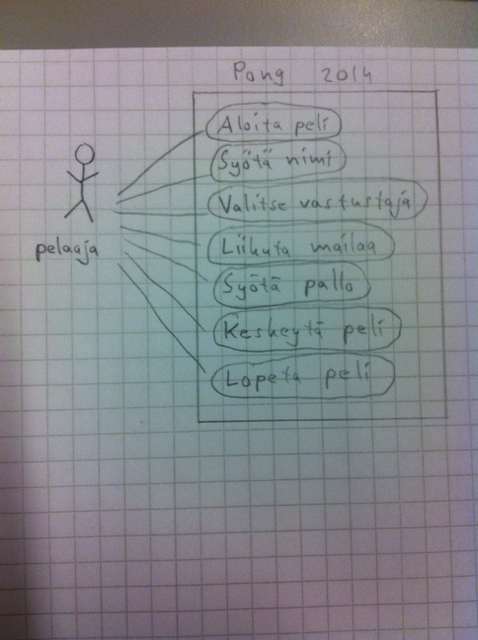 Pong 2014
Aloita peli
Syötä nimi
Valitse vastustaja
Liikuta mailaa
pelaaja
Syötä pallo
Keskeytä peli
Lopeta peli